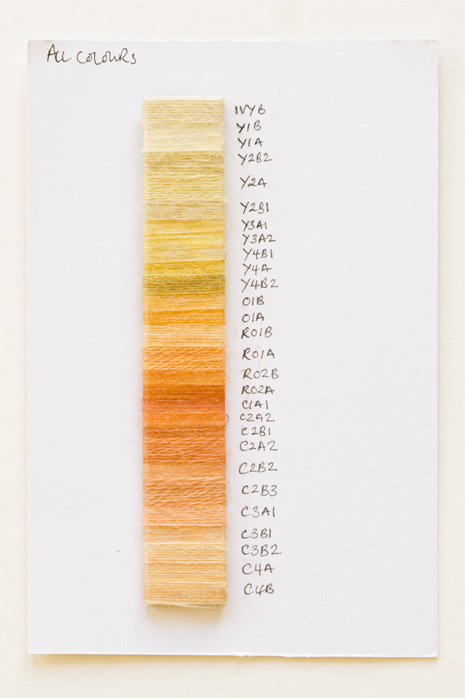 ALL COLOURS
IVY B
Y1B
Y1A
Y2B2
Y2A
Y2B1
Y3A1
Y3A2
Y4B1
Y4A
Y4B2
O1B
O1A
RO1B
RO1A
RO2B
RO2A
C1A1
C2A2
C2B1
C2A2
C2B2
C2B3
C3A1
C3B1
C3B2
C4A
C4B